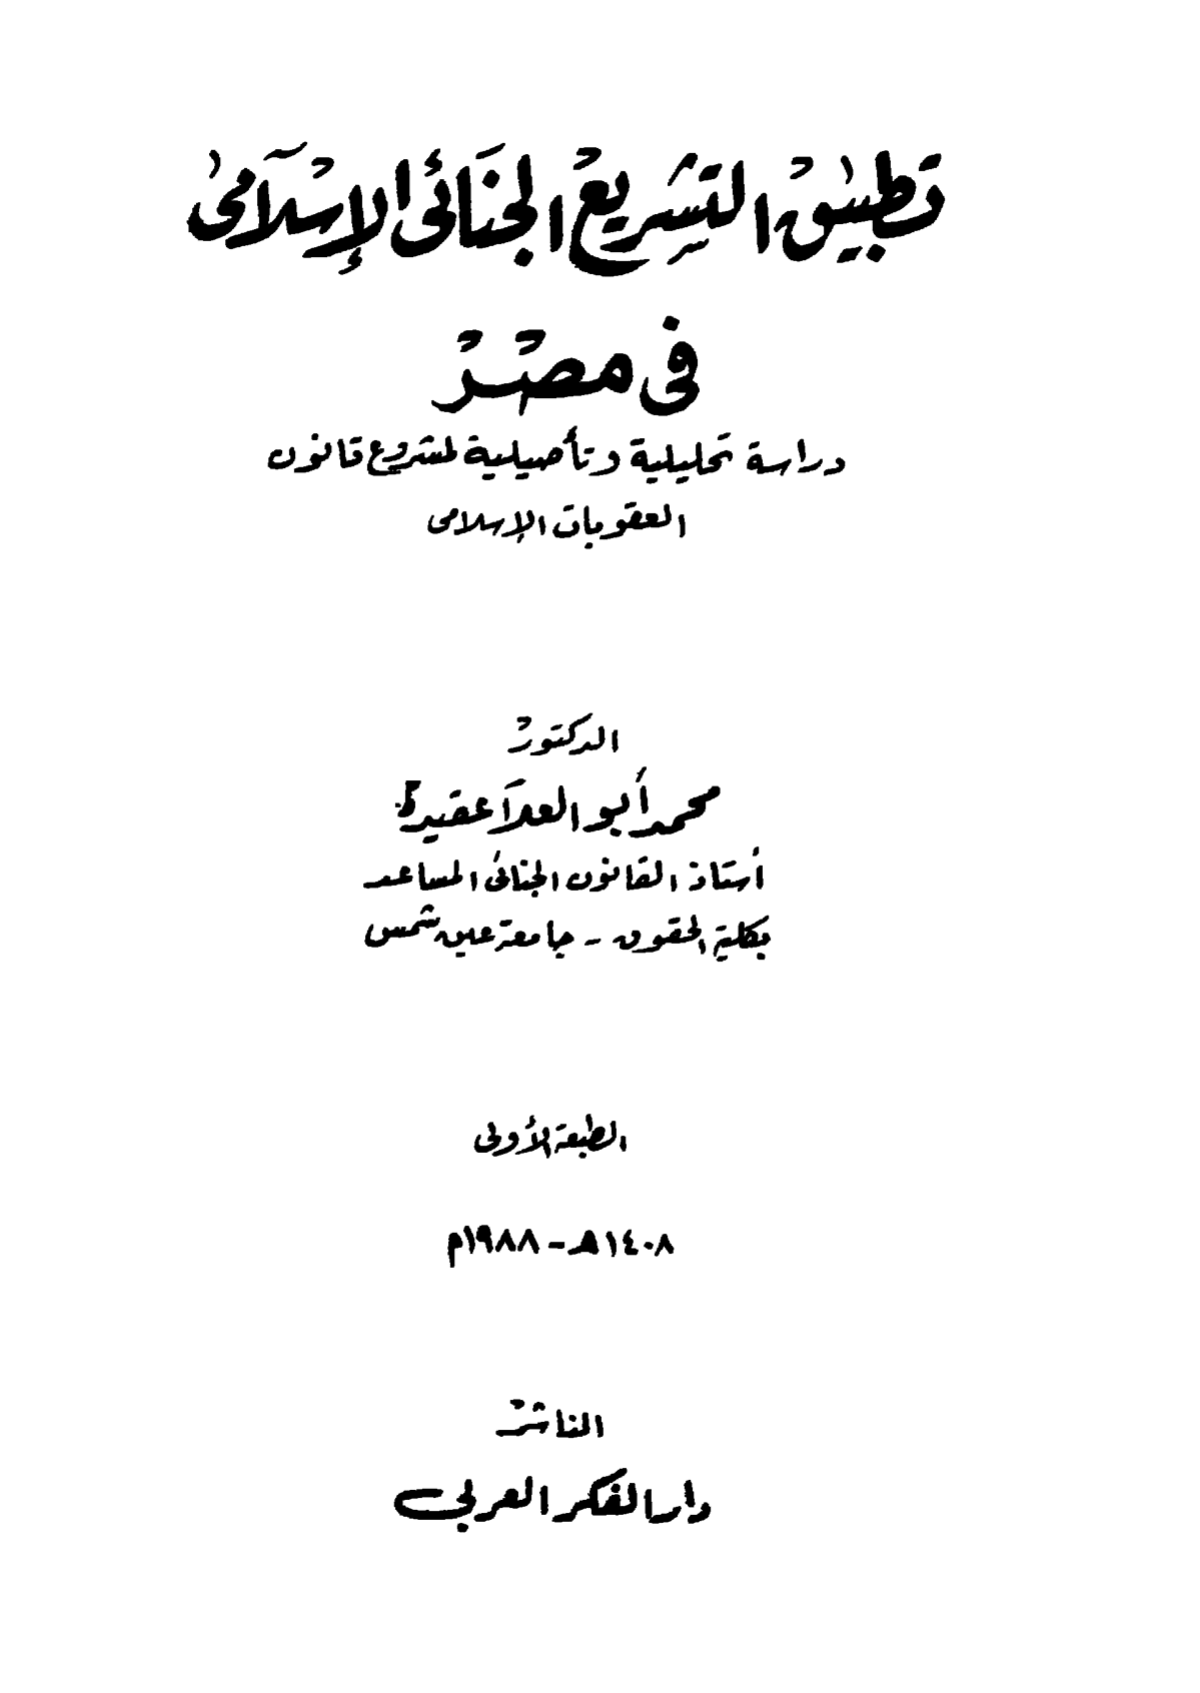 تطبيق التشريع الجنائى الإسلامى
فى مصر
دراسة تحليلية وتأصيلية لمشروع قانون
العقوبات الإسلامى
الدكتور
محمد أبو العلا عقيدة
أستاذ القانون الجنائى المساعد
بكلية الحقوق - جامعة عين شمس
الطبعة الأولى
١٤٠٨هـ - ١٩٨٨م
الناشر
دار الفكر العربي